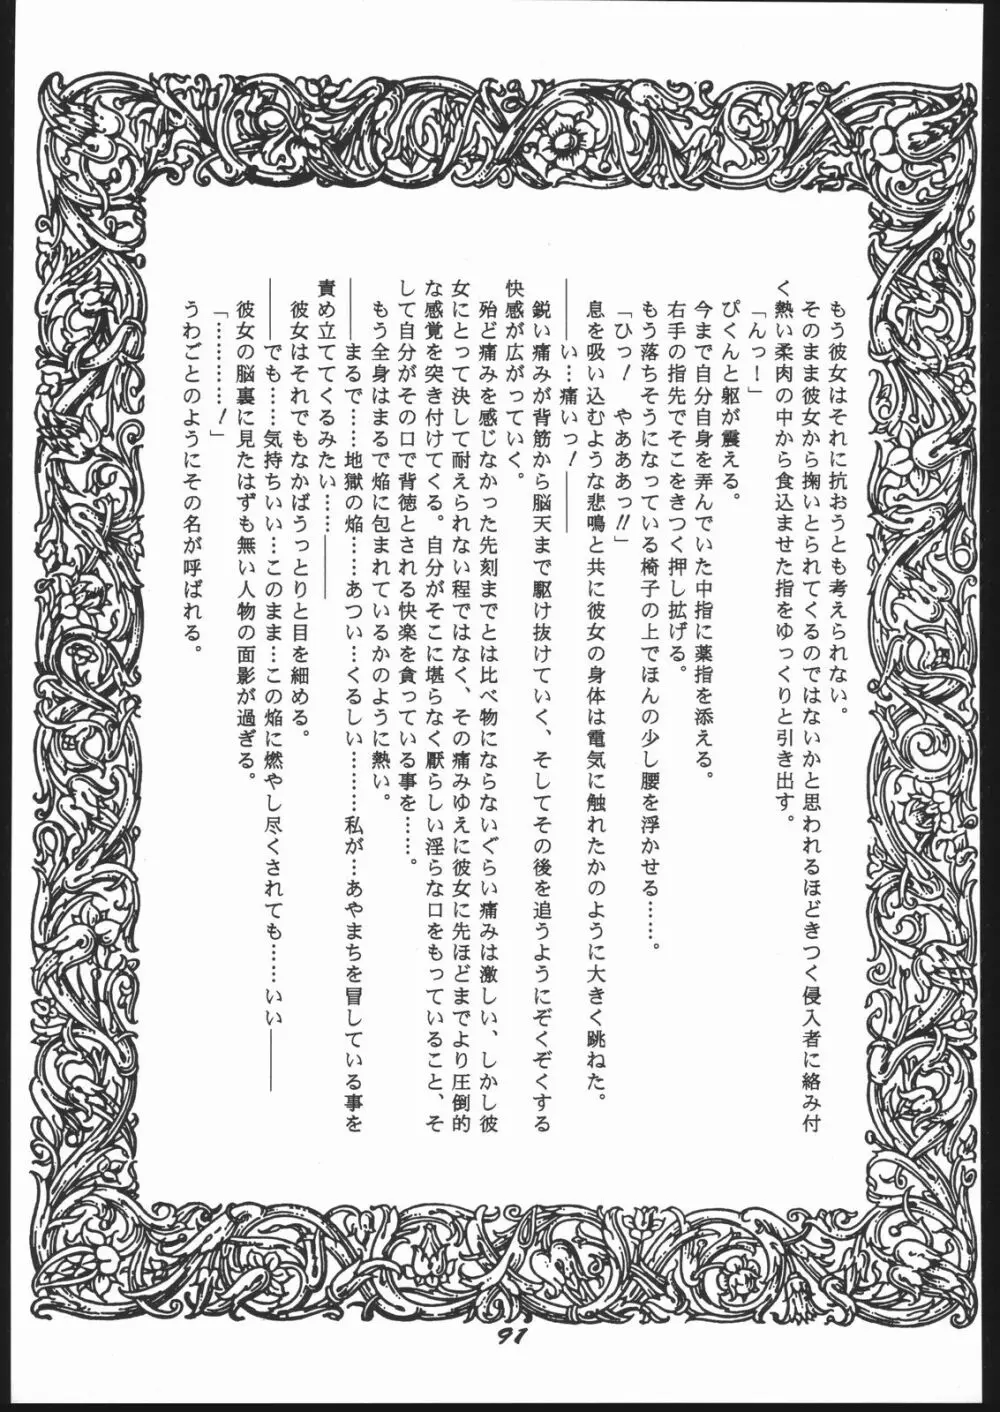 もう彼女はそれに抗おうとも考えられない。
そのまま彼女から掬いとられてくるのではないかと思われるほどきつく侵入者に絡み付
く熱い柔肉の中から食込ませた指をゆっくりと引き出す。
「んっ！」
ぴくんと躯が震える。
今まで自分自身を弄んでいた中指に薬指を添える。
右手の指先でそこをきつく押し拡げる。
もう落ちそうになっている椅子の上でほんの少し腰を浮かせる……。
「ひっ！　やあああっ!!」
息を吸い込むような悲鳴と共に彼女の身体は電気に触れたかのように大きく跳ねた。
――い…痛いっ！――
鋭い痛みが背筋から脳天まで駆け抜けていく、そしてその後を追うようにぞくぞくする
快感が広がっていく。
殆ど痛みを感じなかった先刻までとは比べ物にならないぐらい痛みは激しい、しかし彼
女にとって決して耐えられない程ではなく、その痛みゆえに彼女に先ほどまでより圧倒的
な感覚を突き付けてくる。自分がそこに堪らなく厭らしい淫らな口をもっていること、そ
して自分がその口で背徳とされる快楽を貪っている事を……。
もう全身はまるで焔に包まれているかのように熱い。
――まるで……地獄の焔……あつい…くるしい………私が…あやまちを冒している事を
責め立ててくるみたい………――
彼女はそれでもなかばうっとりと目を細める。
――でも……気持ちいい…このまま…この焔に燃やし尽くされても……いい――
彼女の脳裏に見たはずも無い人物の面影が過ぎる。
「…………！」
うわごとのようにその名が呼ばれる。
91